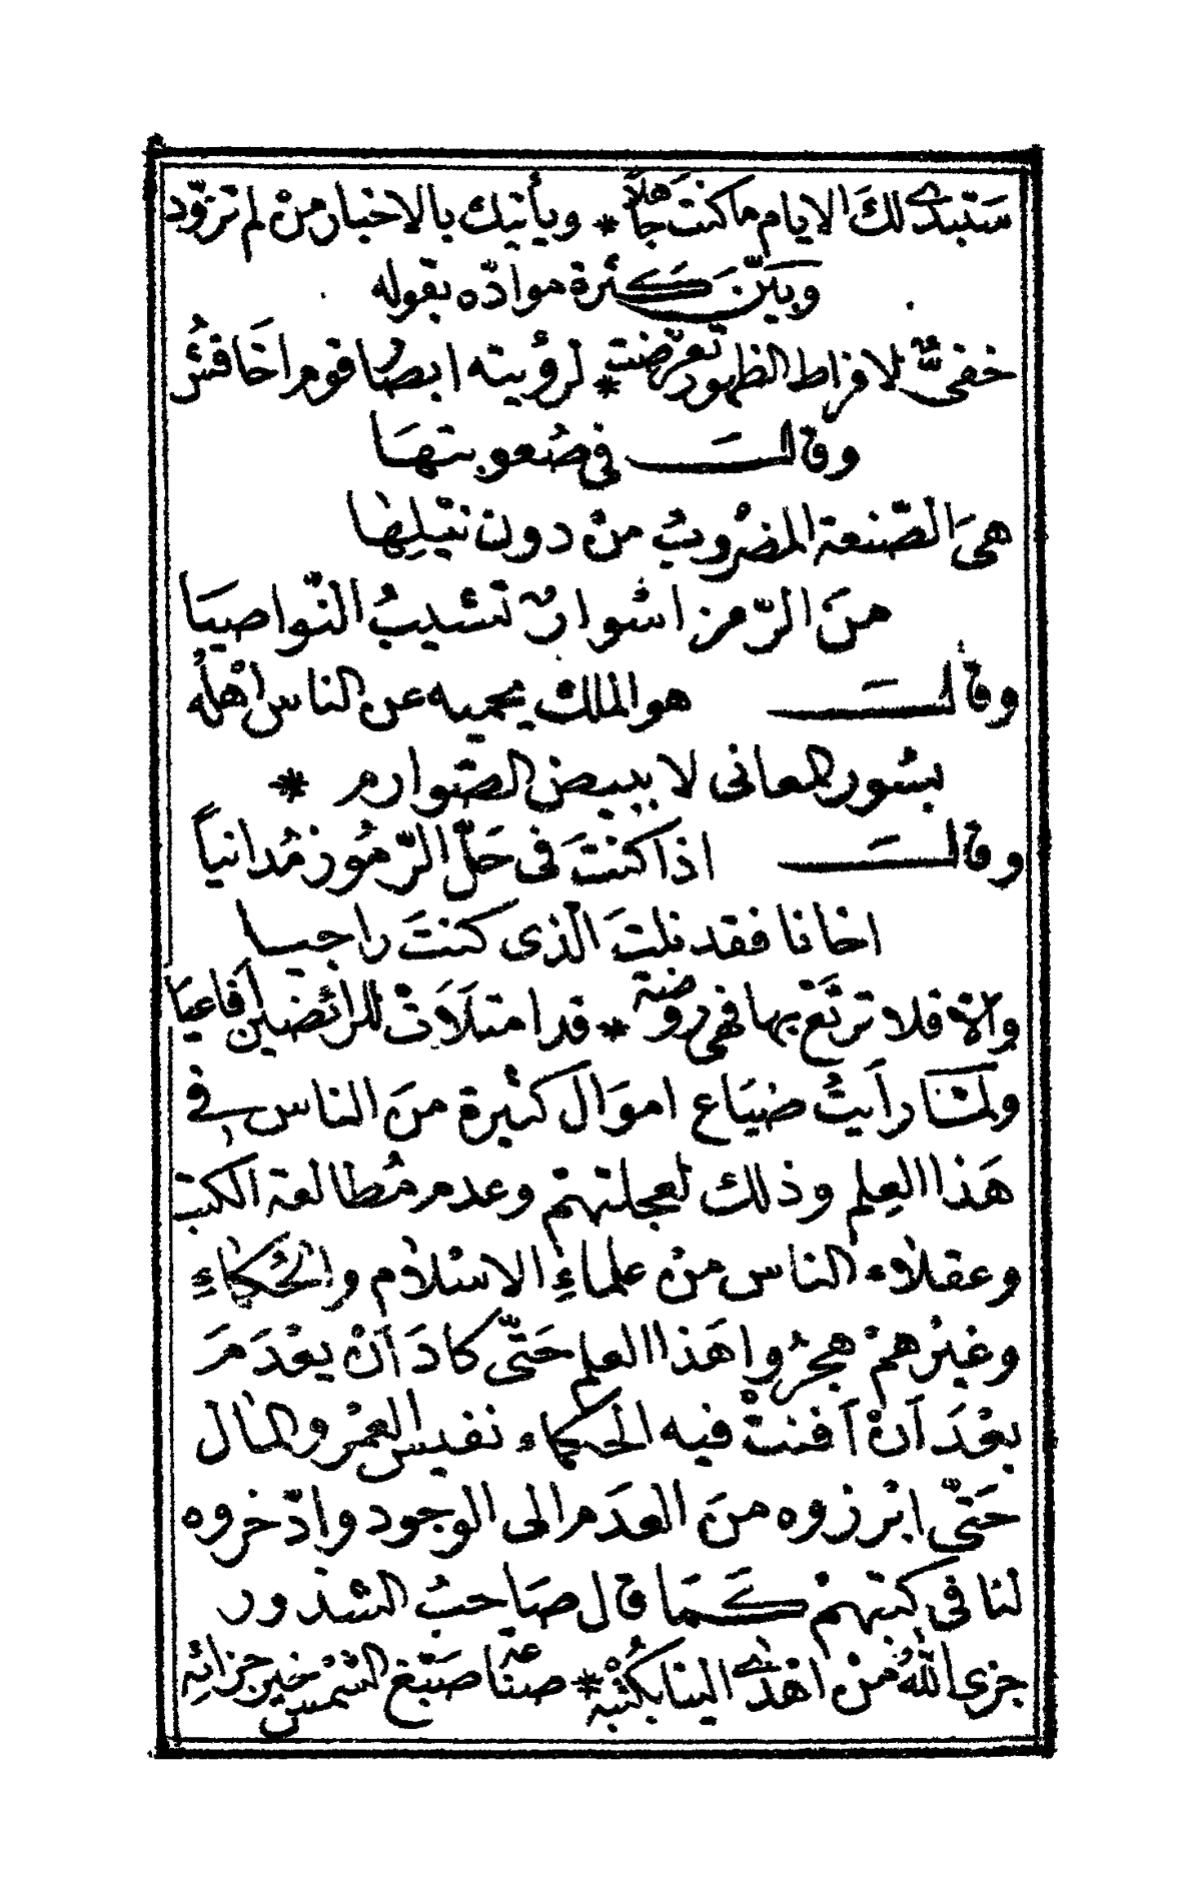 سَتبدى لكَ الايام ما كنتَ جاهلاً * ويأتيك بالاخبار منْ لم تزوّد
وبيّنَ كثرة موادّه بقوله
خفىٌّ لافراط الظهور تعرّضت * لرؤيته ابصارُ قوم اخَافشُ
وقالَ فى صُعوبتهَا
هىَ الصّنعة المضْروبُ منْ دون نيْلِهَا
منَ الرّمز اسْوارٌ تُشيبُ النّواصيَا
وقالَ هو الملك يحميه عن الناس اهْلهُ
بسُور المعانى لا ببيض الصّوارم *
وقالَ اذا كنتَ فى حَلّ الرّمُوز مُدانياً
اخانا فقد نلتَ الّذى كنتَ راجيا
والّا فلا ترتَعْ بها فهى روضة * قد امتلَاَتْ للرائضينَ اَفاعيَا
ولمّا رأيتُ ضيَاع اموَال كثيرة منَ الناس فى
هَذا العِلم وذلك لعجلتهمْ وعدم مُطالعة الكتب
وعقلاء الناس منْ علماءِ الاسْلام والحُكماءِ
وغيرُهمْ هجرُوا هَذا العلم حَتّى كادَ اَنْ يعْدَمَ
بعْدَ اَنْ اَفنتْ فيه الحكماء نفيس العمْر والمال
حَتّى ابْرزوه منَ العدَم الى الوجود وادّخروه
لنا فى كتبهمْ كَمَا قال صَاحبُ الشذور
جزى اللّٰهُ منْ اهْدى الينا بكُتْبه * صنْعة صبْغ الشمْس خير جزائهِ